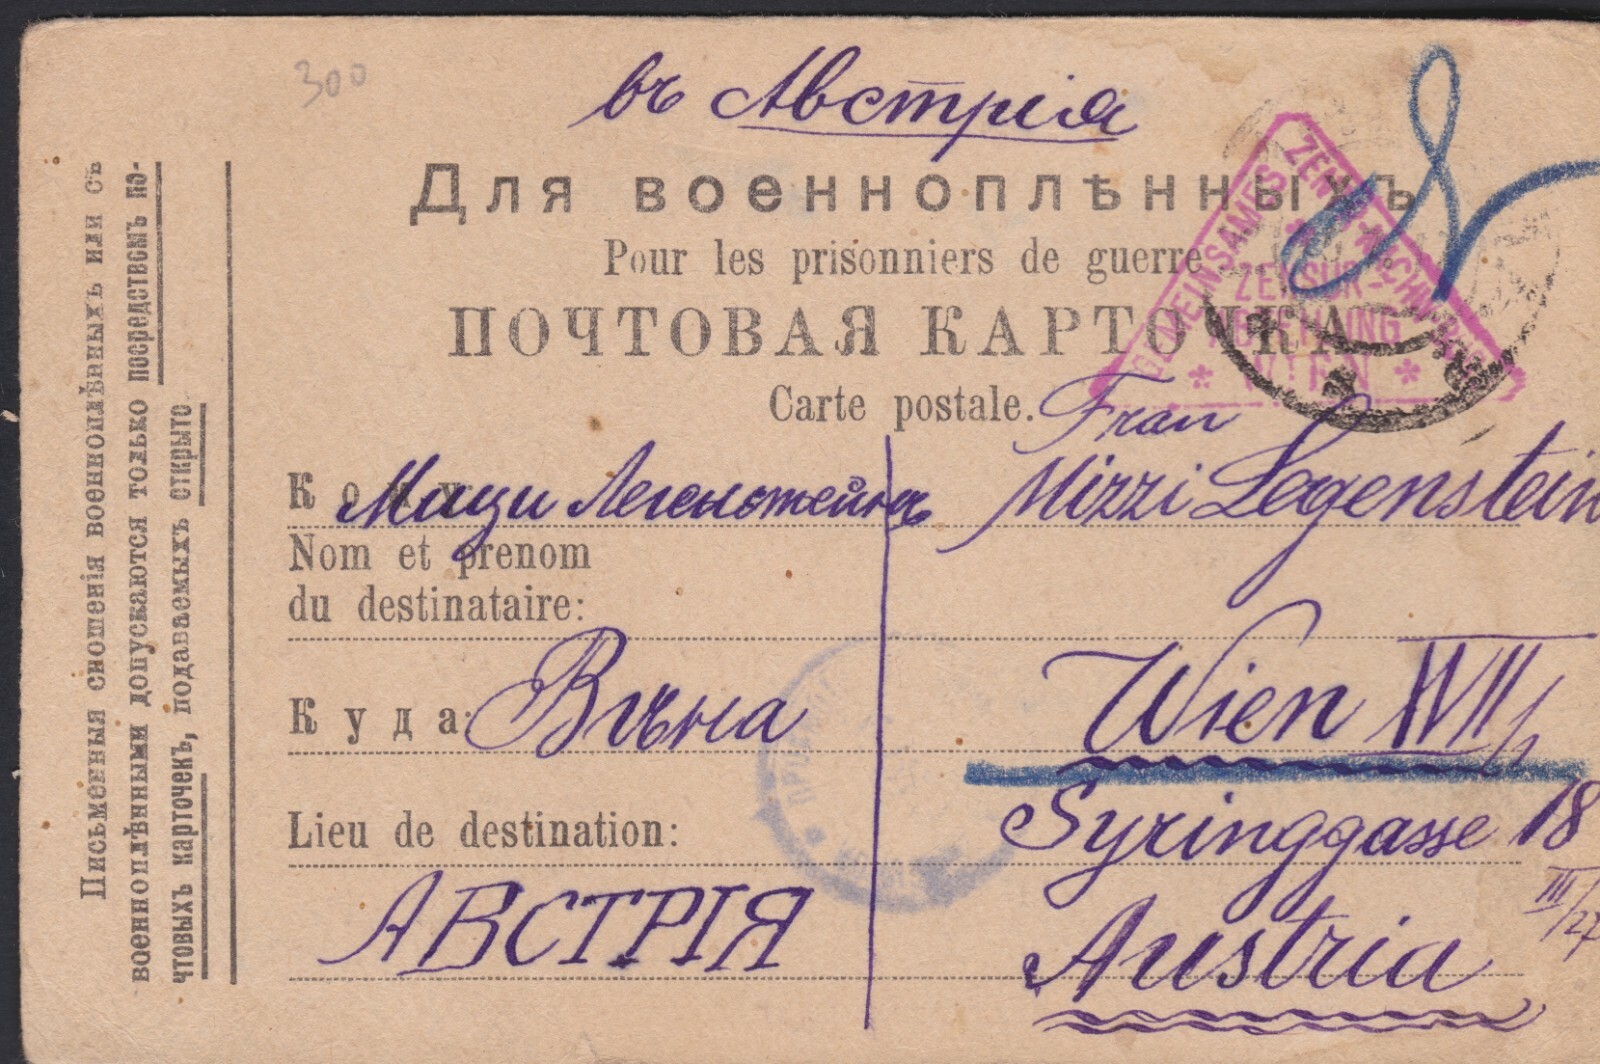 300
въ Австрія
Для военноплѣнныхъ
Pour les prisonniers de guerre
ПОЧТОВАЯ КАРТОЧКА
Carte postale.
GEMEINSAMES ZENTRALNACHWEIS
ZENSUR-
ABTEILUNG
* WIEN *
Кому:
Мици Легенштейнъ
Nom et prenom
du destinataire:
Куда
Вѣна
Lieu de destination:
АВСТРІЯ
Frau
Mizzi Legenstein
Wien XVII/1
Syringgasse 18
III/27
Austria
Письменныя сношенія военноплѣнныхъ или съ
военноплѣнными допускаются только посредствомъ по-
чтовыхъ карточекъ, подаваемыхъ открыто